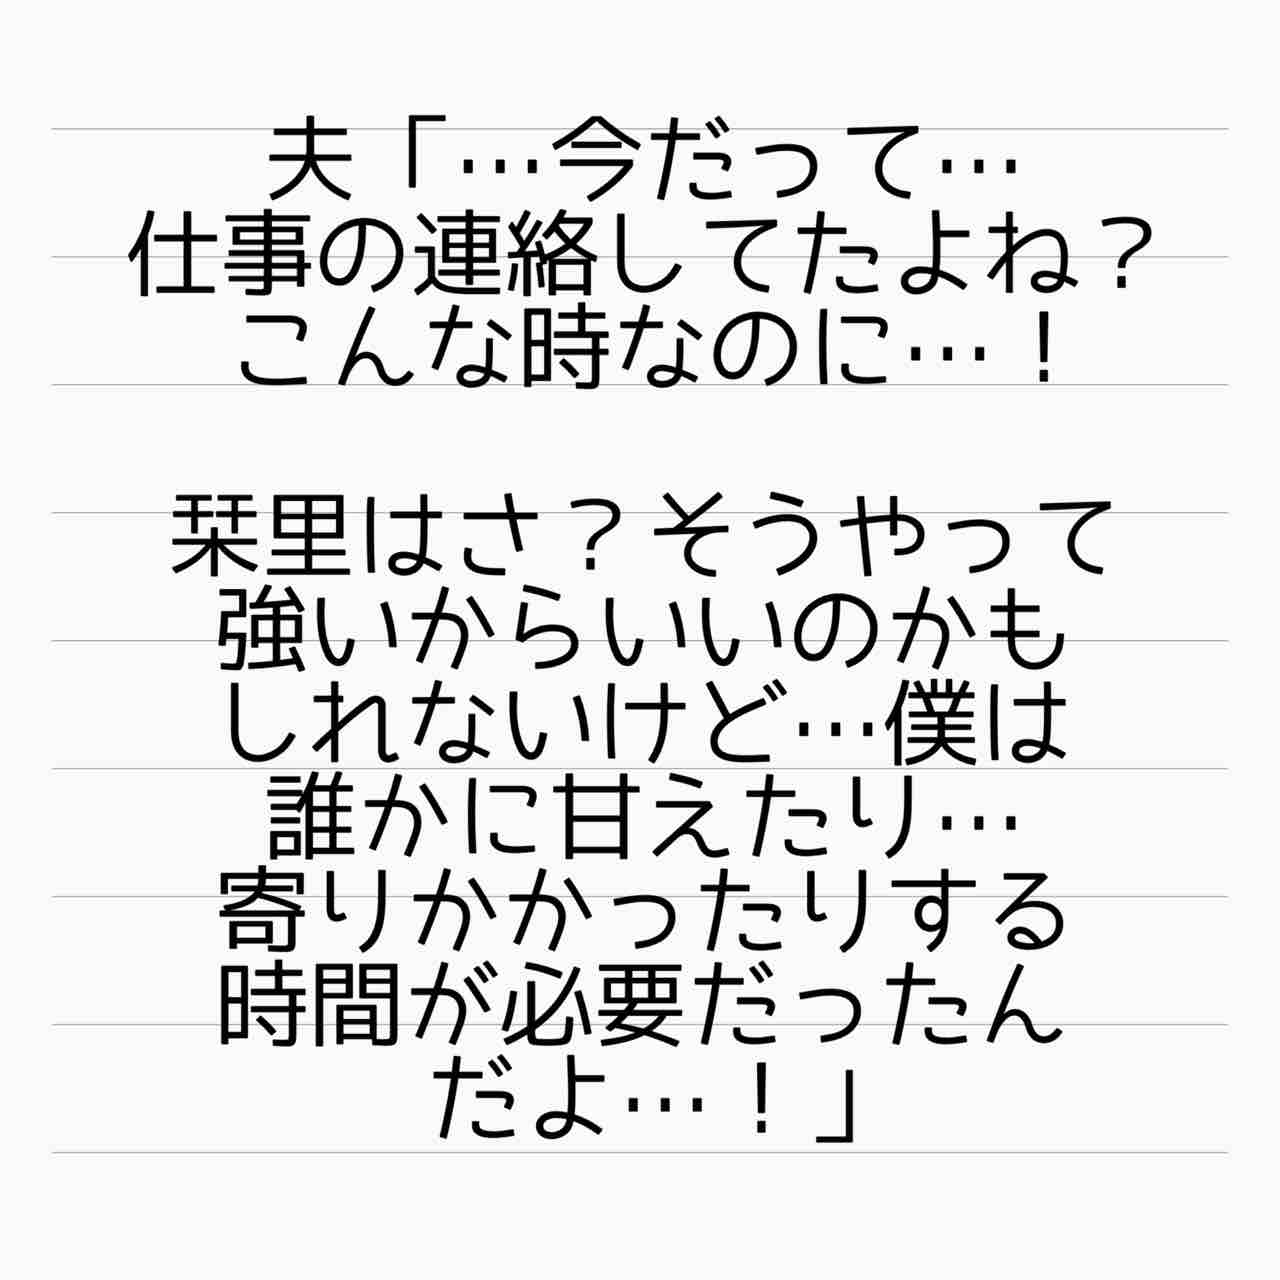 夫「…今だって…
仕事の連絡してたよね？
こんな時なのに…！
栞里はさ？そうやって
強いからいいのかも
しれないけど…僕は
誰かに甘えたり…
寄りかかったりする
時間が必要だったん
だよ…！」